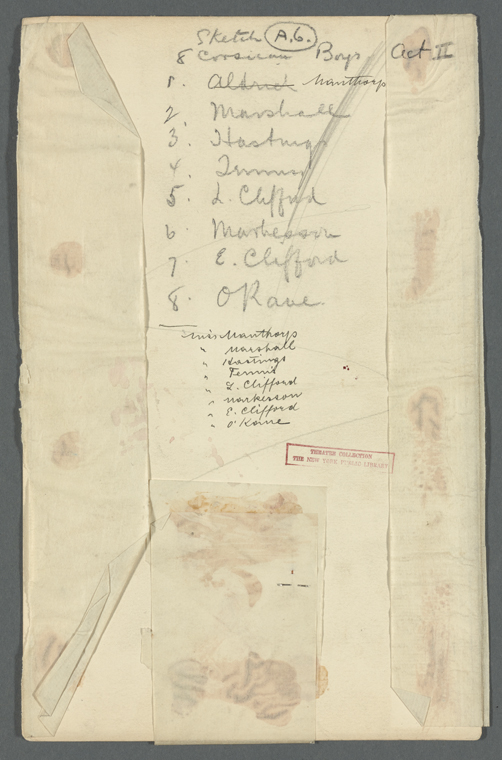 Sketch A.6.
8 Corsican Boys Act II
1. Aldrid Manthorp
2. Marshall
3. Hastings
4. Tennis
5. L. Clifford
6 Markesson
7. E. Clifford
8. O'Kane.
Miss Manthorp
" Marshall
" Hastings
" Tennis
" L. Clifford
" Markesson
" E. Clifford
" O'Kane
THEATER COLLECTION
THE NEW YORK PUBLIC LIBRARY